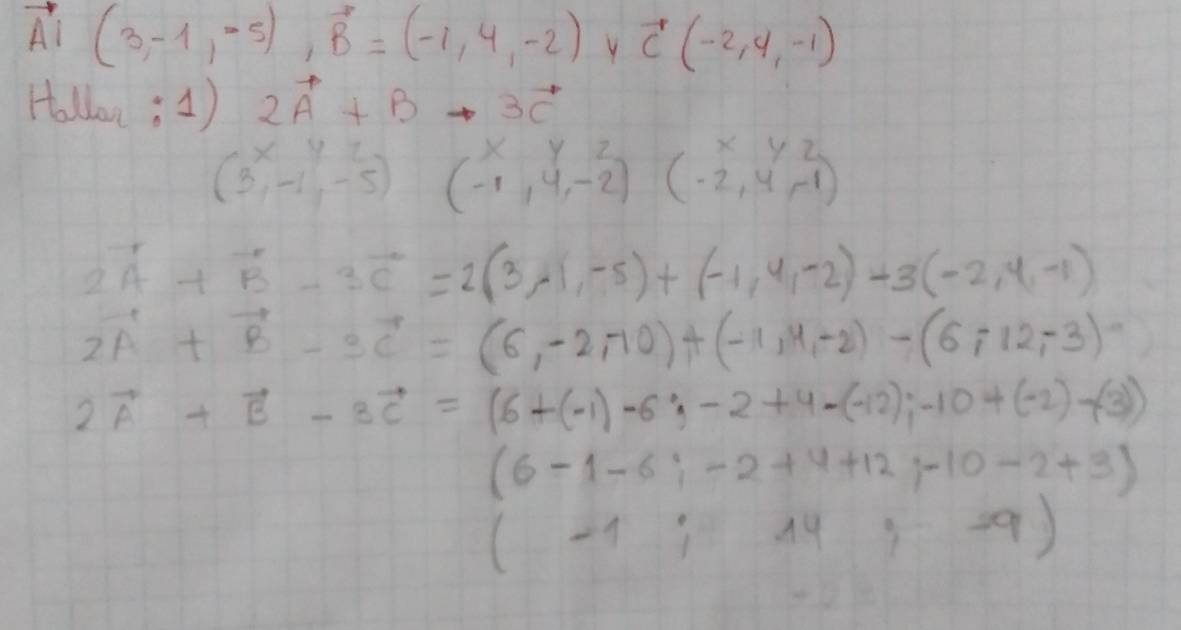 A⃗| (3,-1,-5), B⃗ = (-1,4,-2) y C⃗ (-2,4,-1)
Hallar : 1) 2A⃗ + B - 3C⃗
x y z x y z x y z
(3,-1,-5) (-1,4,-2) (-2,4,-1)
2A⃗ + B⃗ - 3C⃗ = 2(3,-1,-5) + (-1,4,-2) - 3(-2,4,-1)
2A⃗ + B⃗ - 3C⃗ = (6,-2,-10) + (-1,4,-2) - (6,-12,-3)
2A⃗ + B⃗ - 3C⃗ = (6+(-1)-6; -2+4-(-12); -10+(-2)-(3))
(6-1-6; -2+4+12; -10-2+3)
( -1 ; 14 ; -9 )